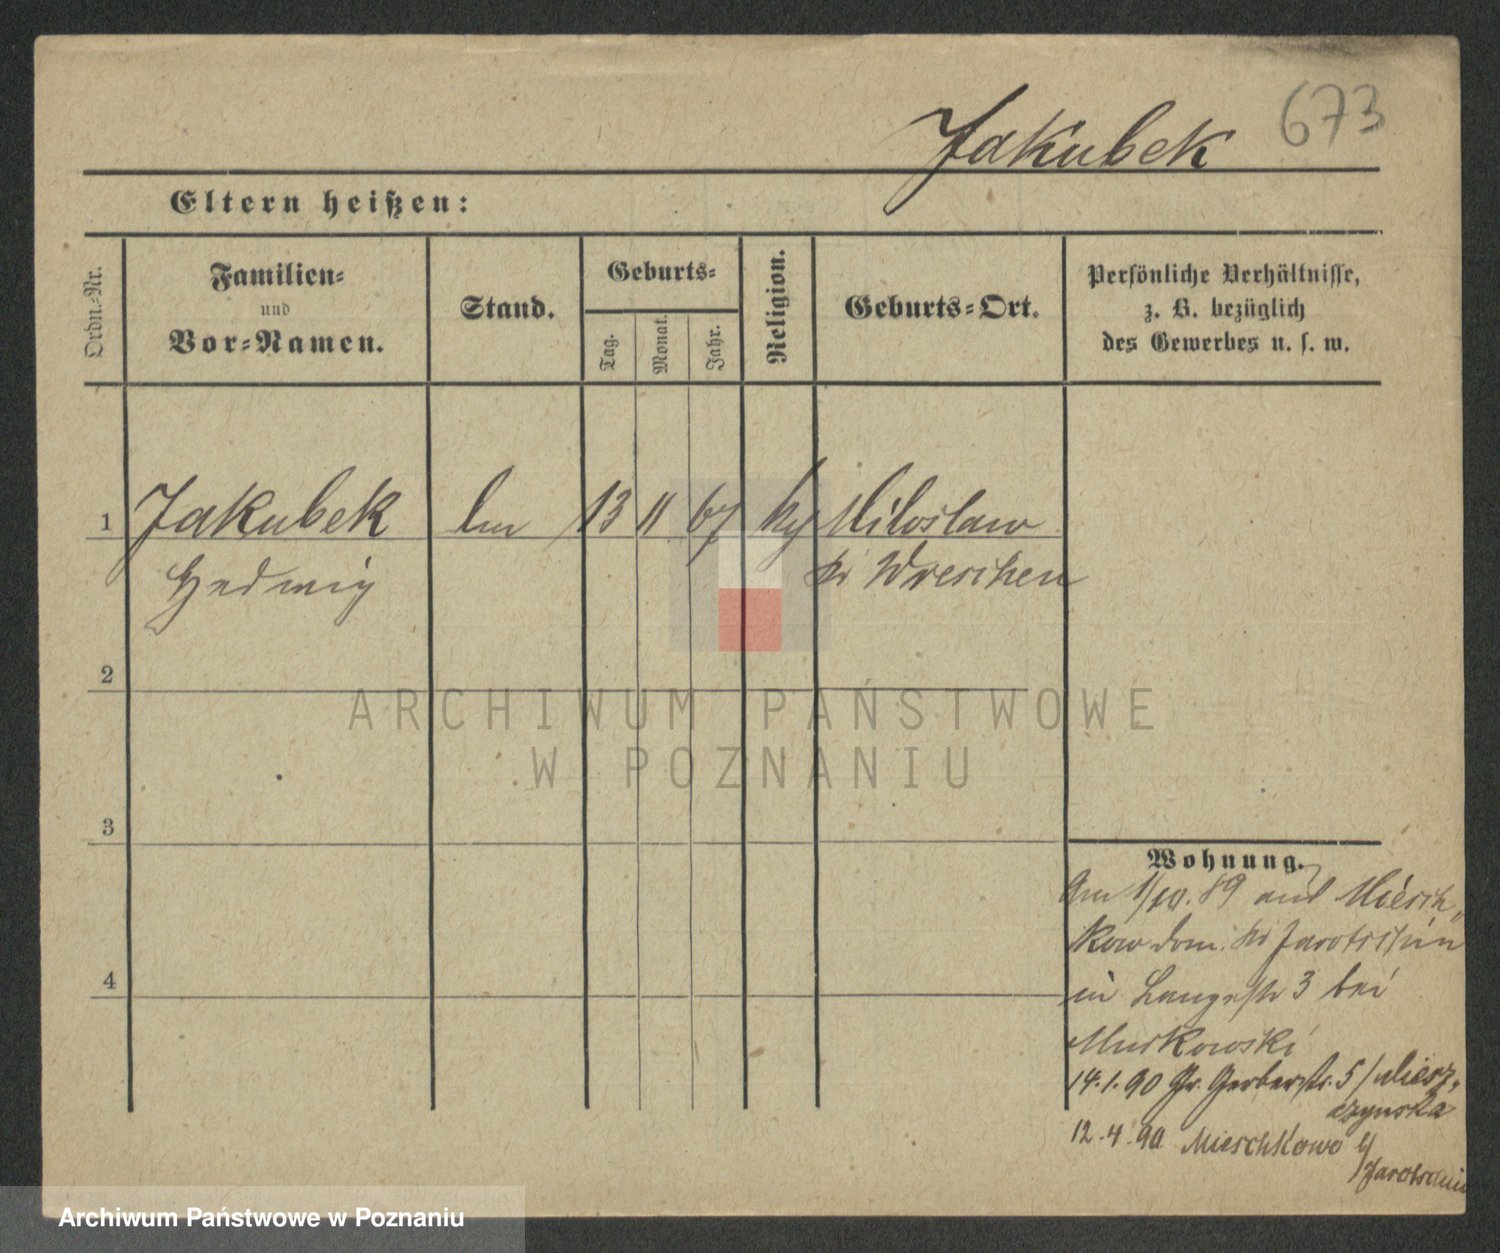 Jakubek 673
Eltern heißen:
Ordn.-Nr.
Familien-
und
Vor-Namen.
Stand.
Geburts-
Tag.
Monat.
Jahr.
Religion.
Geburts-Ort.
Persönliche Verhältnisse,
z. B. bezüglich
des Gewerbes u. s. w.
1 Jakubek 13 11 67 Miloslaw
Hedwig Wreschen
2
3
4
Wohnung.
Am 1/10. 89 aus Miesch„
kow dom. Kr Jarotschin
in Langestr 3 bei
Murkowski
14.1.90 Gr. Gerberstr. 5/
12.4.90 Mieschkowo
Jarotschin
ARCHIWUM PAŃSTWOWE
W POZNANIU
Archiwum Państwowe w Poznaniu